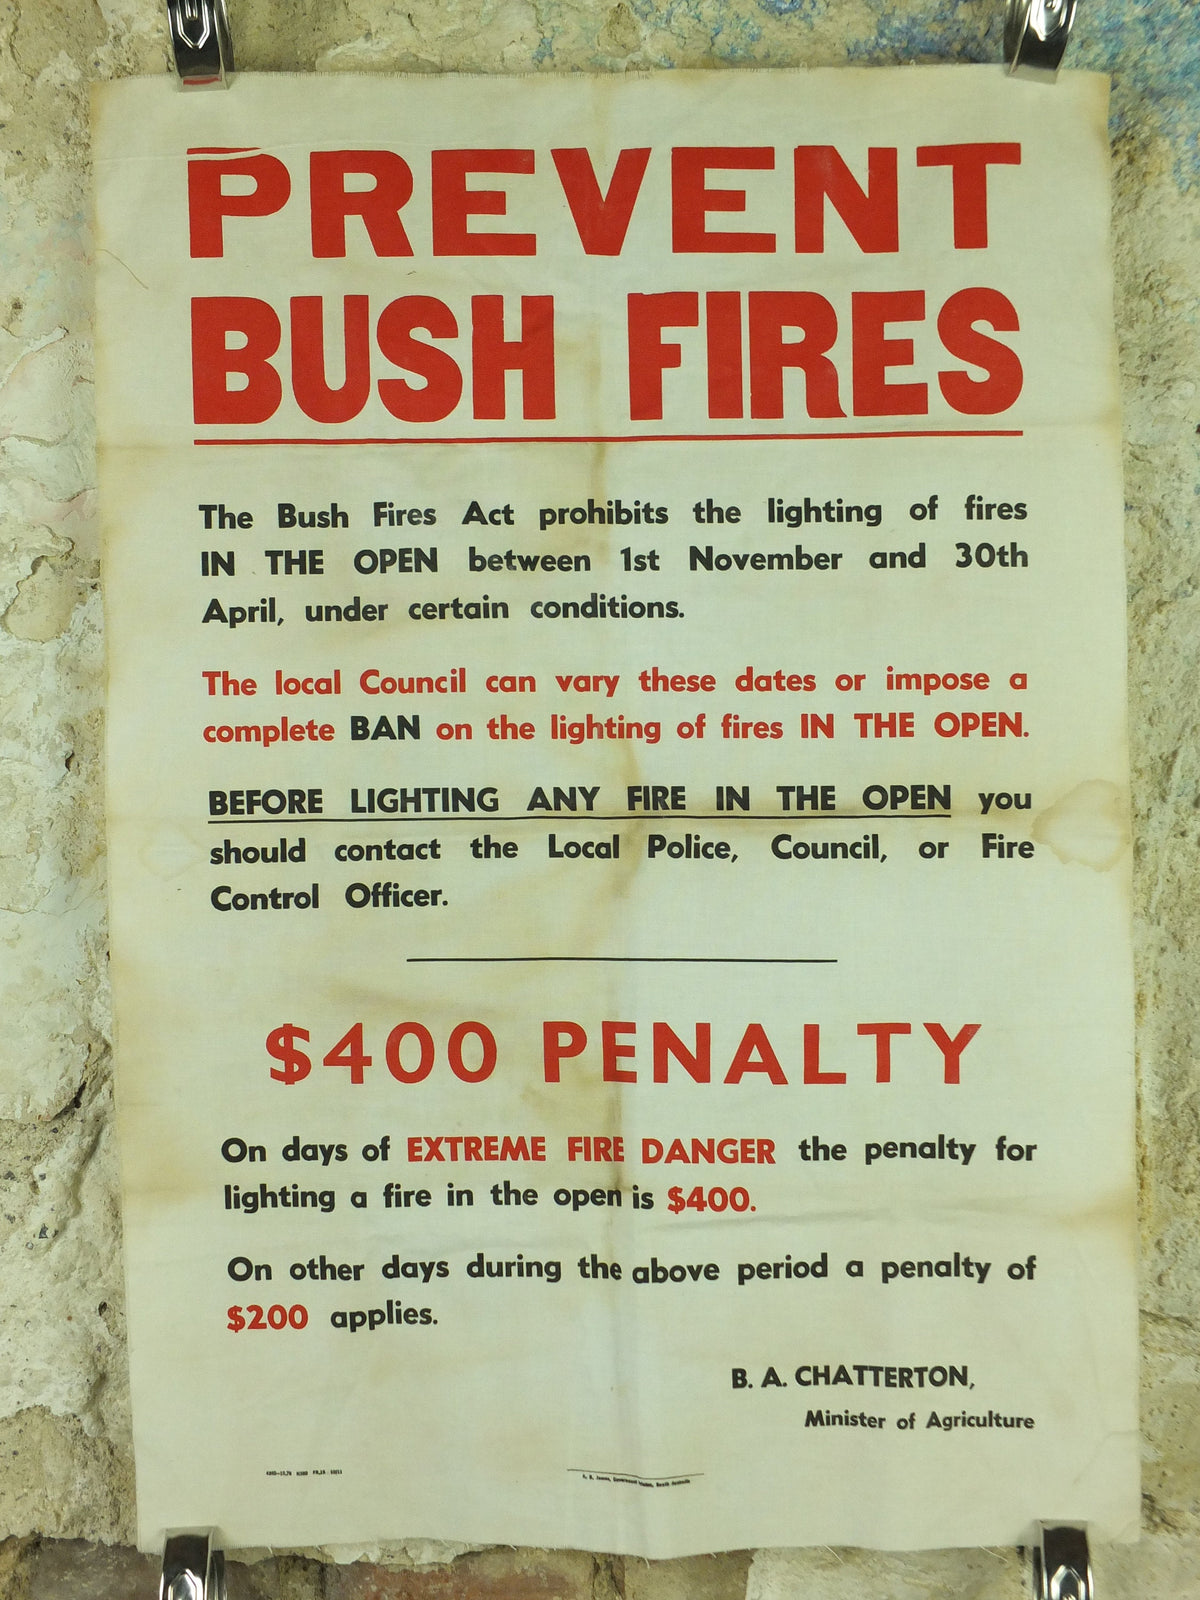 PREVENT
BUSH FIRES
The Bush Fires Act prohibits the lighting of fires
IN THE OPEN between 1st November and 30th
April, under certain conditions.
The local Council can vary these dates or impose a
complete BAN on the lighting of fires IN THE OPEN.
BEFORE LIGHTING ANY FIRE IN THE OPEN you
should contact the Local Police, Council, or Fire
Control Officer.
$400 PENALTY
On days of EXTREME FIRE DANGER the penalty for
lighting a fire in the open is $400.
On other days during the above period a penalty of
$200 applies.
B. A. CHATTERTON,
Minister of Agriculture
South Australia